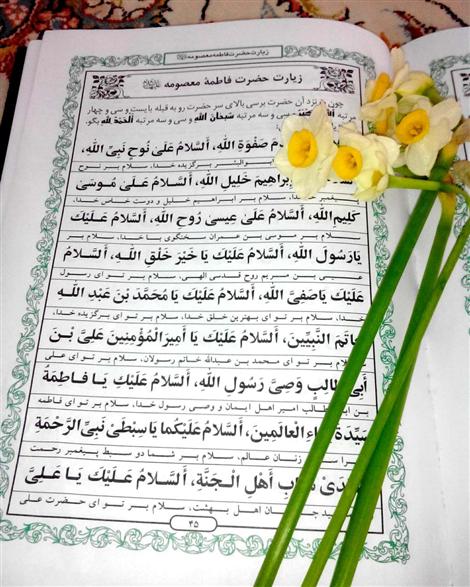 زیارت حضرت فاطمه معصومه
زیارت حضرت فاطمهٔ معصومه
چون نزد آن حضرت برسی بالای سر حضرت رو به قبله بایست و سی و چهار
مرتبه سی و سه مرتبه سُبْحانَ اللهِ و سی و سه مرتبه اَلْحَمْدُ لِلّهِ بگو.
صَفْوَةِ اللهِ، اَلسَّلامُ عَلیٰ نُوحٍ نَبِیِّ اللهِ،
برگزیده خدا، سلام بر نوح
اِبْراهِیمَ خَلِیلِ اللهِ، اَلسَّلامُ عَلیٰ مُوسیٰ
خدا، سلام بر ابراهیم خلیل و دوست خاص خدا،
کَلِیمِ اللهِ، اَلسَّلامُ عَلیٰ عِیسیٰ رُوحِ اللهِ، اَلسَّلامُ عَلَیْکَ
سلام بر موسی بن عمران سخنگوی با خدا، سلام بر
یا رَسُولَ اللهِ، اَلسَّلامُ عَلَیْکَ یا خَیْرَ خَلْقِ اللهِ، اَلسَّلامُ
عیسی بن مریم روح قدسی الهی، سلام بر تو ای رسول
عَلَیْکَ یا صَفِیَّ اللهِ، اَلسَّلامُ عَلَیْکَ یا مُحَمَّدَ بْنَ عَبْدِ اللهِ
خدا، سلام بر تو ای بهترین خلق خدا، سلام بر تو ای برگزیده خدا،
خاتَمَ النَّبِیِّینَ، اَلسَّلامُ عَلَیْکَ یا اَمِیرَ الْمُؤْمِنِینَ عَلِیَّ بْنَ
سلام بر تو ای محمد بن عبدالله خاتم رسولان، سلام بر تو ای علی
اَبِی طالِبٍ وَصِیَّ رَسُولِ اللهِ، اَلسَّلامُ عَلَیْکِ یا فاطِمَةُ
بن ابی طالب امیر اهل ایمان و وصی رسول خدا، سلام بر تو ای فاطمه
سَیِّدَةَ نِساءِ الْعالَمِینَ، اَلسَّلامُ عَلَیْکُما یا سِبْطَیْ نَبِیِّ الرَّحْمَةِ
زنان عالم، سلام بر شما دو سبط پیغمبر رحمت
شَبابِ اَهْلِ الْجَنَّةِ، اَلسَّلامُ عَلَیْکَ یا عَلِیَّ
اهل بهشت، سلام بر تو ای حضرت علی
۴۵